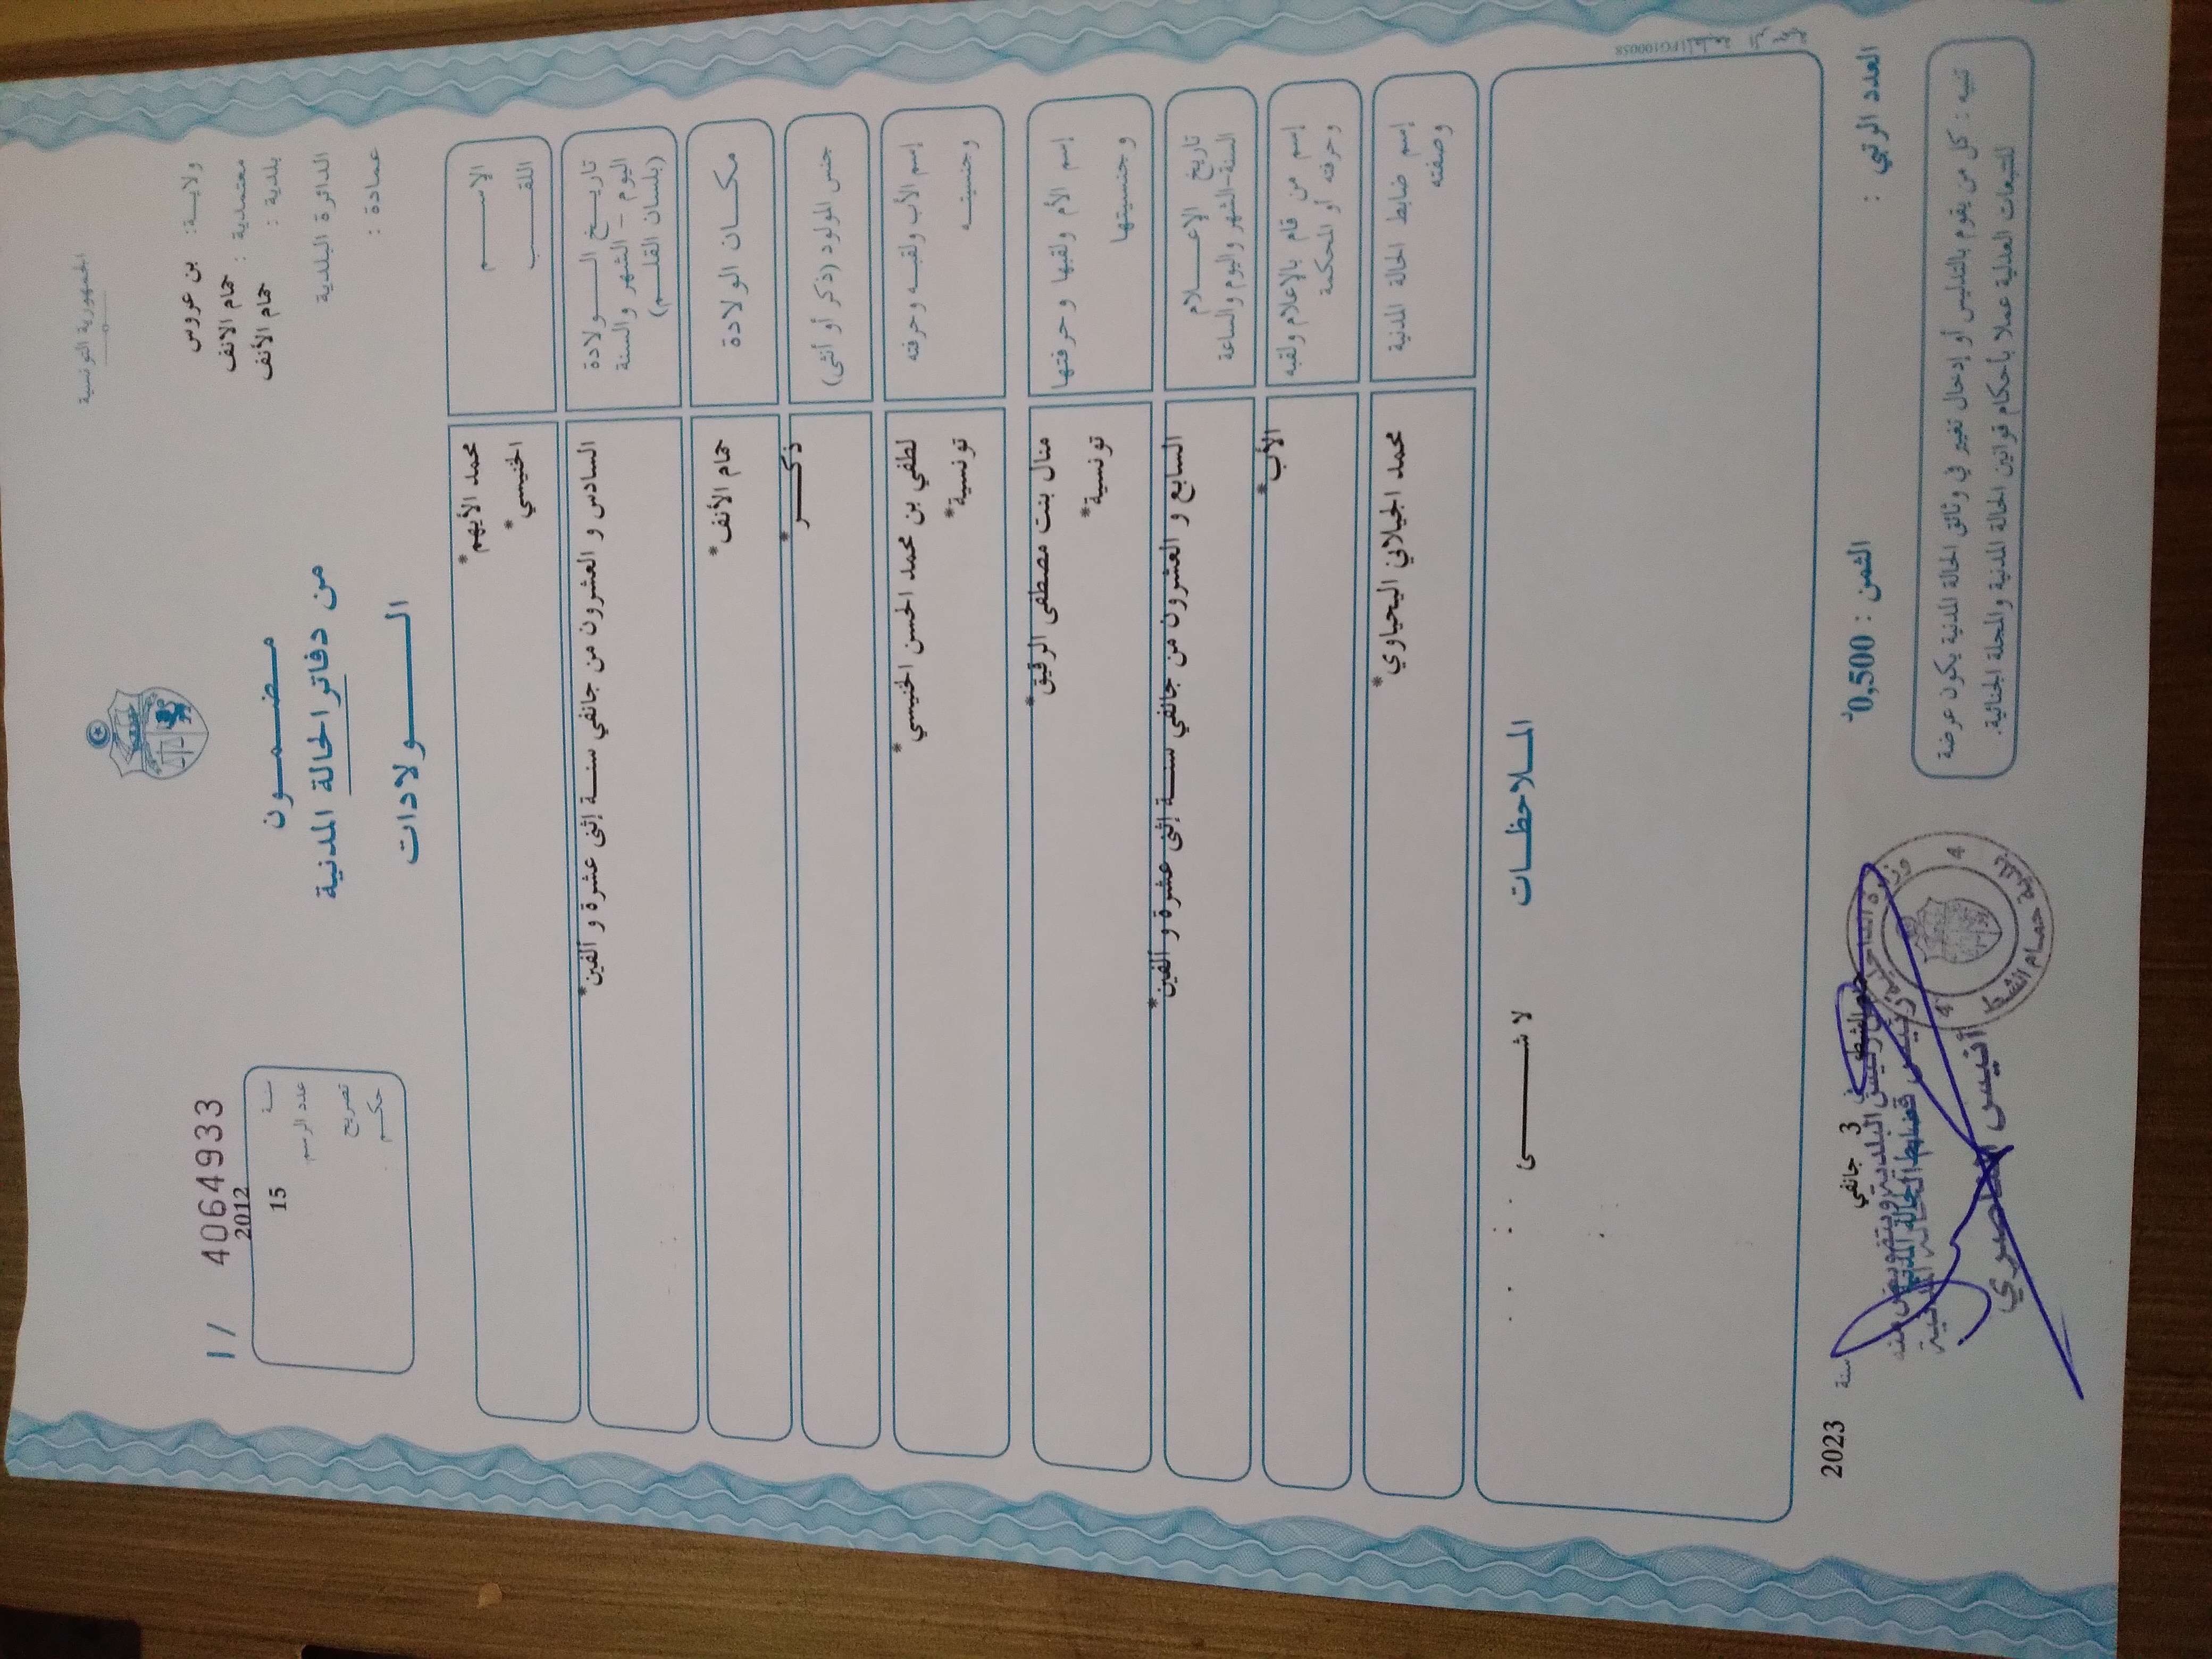 الجمهورية التونسية
ولاية: بن عروس
معتمدية : حمام الانف
بلدية : حمام الأنف
الدائرة البلدية
عمادة :
مضمون
من دفاتر الحالة المدنية
الولادات
1 / 40649333
2012 سنة
15 عدد الرسم
تصريح
حكم
الاسم محمد الأيهم*
اللقب الخنيسي*
تاريخ الولادة السادس و العشرون من جانفي سنة إثنى عشرة و ألفين*
اليوم - الشهر والسنة
(بلسان القلم)
مكان الولادة حمام الأنف*
جنس المولود (ذكر أو أنثى) ذكر*
إسم الأب ولقبه وحرفته لطفي بن محمد الحسن الخنيسي*
وجنسيته تونسية*
إسم الأم ولقبها وحرفتها منال بنت مصطفى الرقيق*
وجنسيتها تونسية*
تاريخ الإعلام السابع و العشرون من جانفي سنة إثنى عشرة و ألفين*
السنة-الشهر واليوم والساعة
إسم من قام بالإعلام ولقبه الأب*
وحرفته أو المحكمة
إسم ضابط الحالة المدنية محمد الجيلاني اليحياوي*
وصفته
الملاحظات
لا شى
PG100058
العدد الرتبي :
الثمن : 0,500د
حمام الشط في 3 جانفي سنة 2023
ضابط الحالة المدنية
أنيس
وزارة الداخلية
بلدية حمام الشط
4 4
تنبيه : كل من يقوم بالتدليس أو إدخال تغيير في وثائق الحالة المدنية يكون عرضة
للتتبعات العدلية عملا بأحكام قوانين الحالة المدنية والمجلة الجنائية.